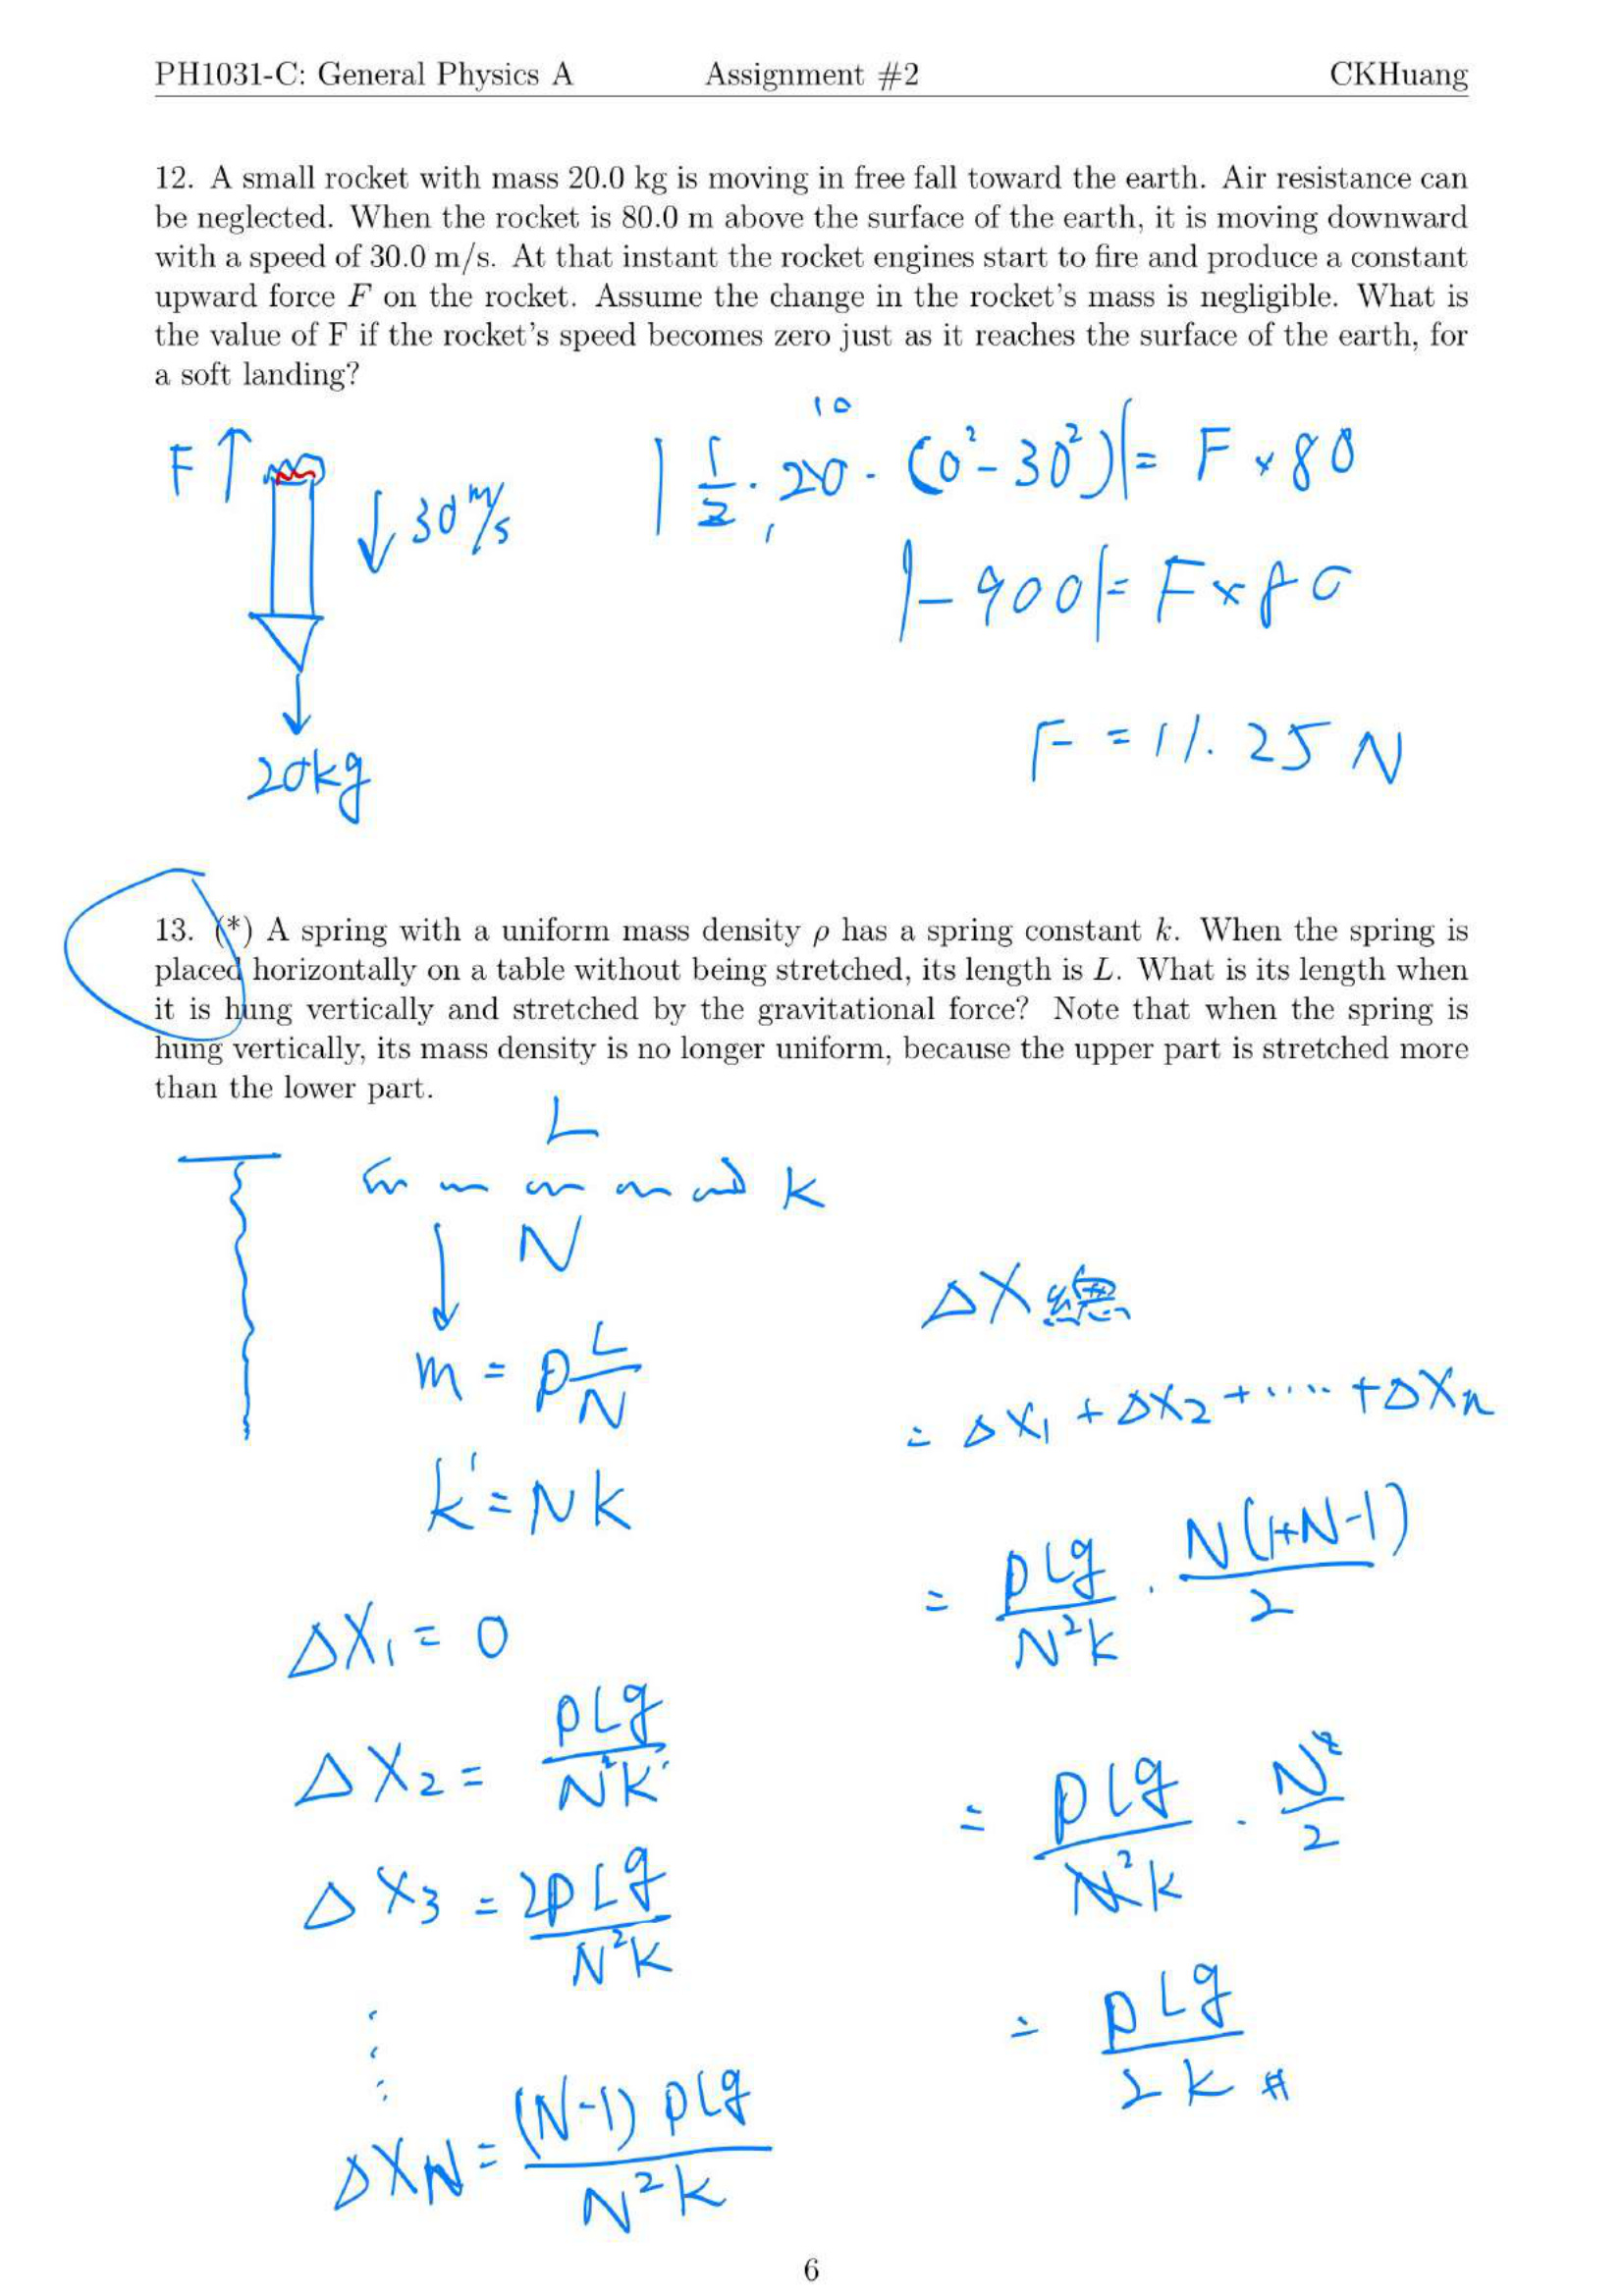 PH1031-C: General Physics A Assignment #2 CKHuang
12. A small rocket with mass 20.0 kg is moving in free fall toward the earth. Air resistance can
be neglected. When the rocket is 80.0 m above the surface of the earth, it is moving downward
with a speed of 30.0 m/s. At that instant the rocket engines start to fire and produce a constant
upward force F on the rocket. Assume the change in the rocket's mass is negligible. What is
the value of F if the rocket's speed becomes zero just as it reaches the surface of the earth, for
a soft landing?
F↑
↓ 30 m/s
20kg
10
|1/2 · 20 · (0² - 30²)| = F × 80
1
|-900| = F × 80
F = 11.25 N
13. (*) A spring with a uniform mass density ρ has a spring constant k. When the spring is
placed horizontally on a table without being stretched, its length is L. What is its length when
it is hung vertically and stretched by the gravitational force? Note that when the spring is
hung vertically, its mass density is no longer uniform, because the upper part is stretched more
than the lower part.
L
k
N
m = ρ L/N
k' = Nk
ΔX₁ = 0
ΔX₂ = ρLg/N²k
ΔX₃ = 2ρLg/N²k
⋮
ΔX_N = (N-1)ρLg/N²k
ΔX總
= ΔX₁ + ΔX₂ + ····· + ΔXn
= ρLg/N²k · N(1+N-1)/2
= ρLg/N²k · N²/2
= ρLg/2k #
6